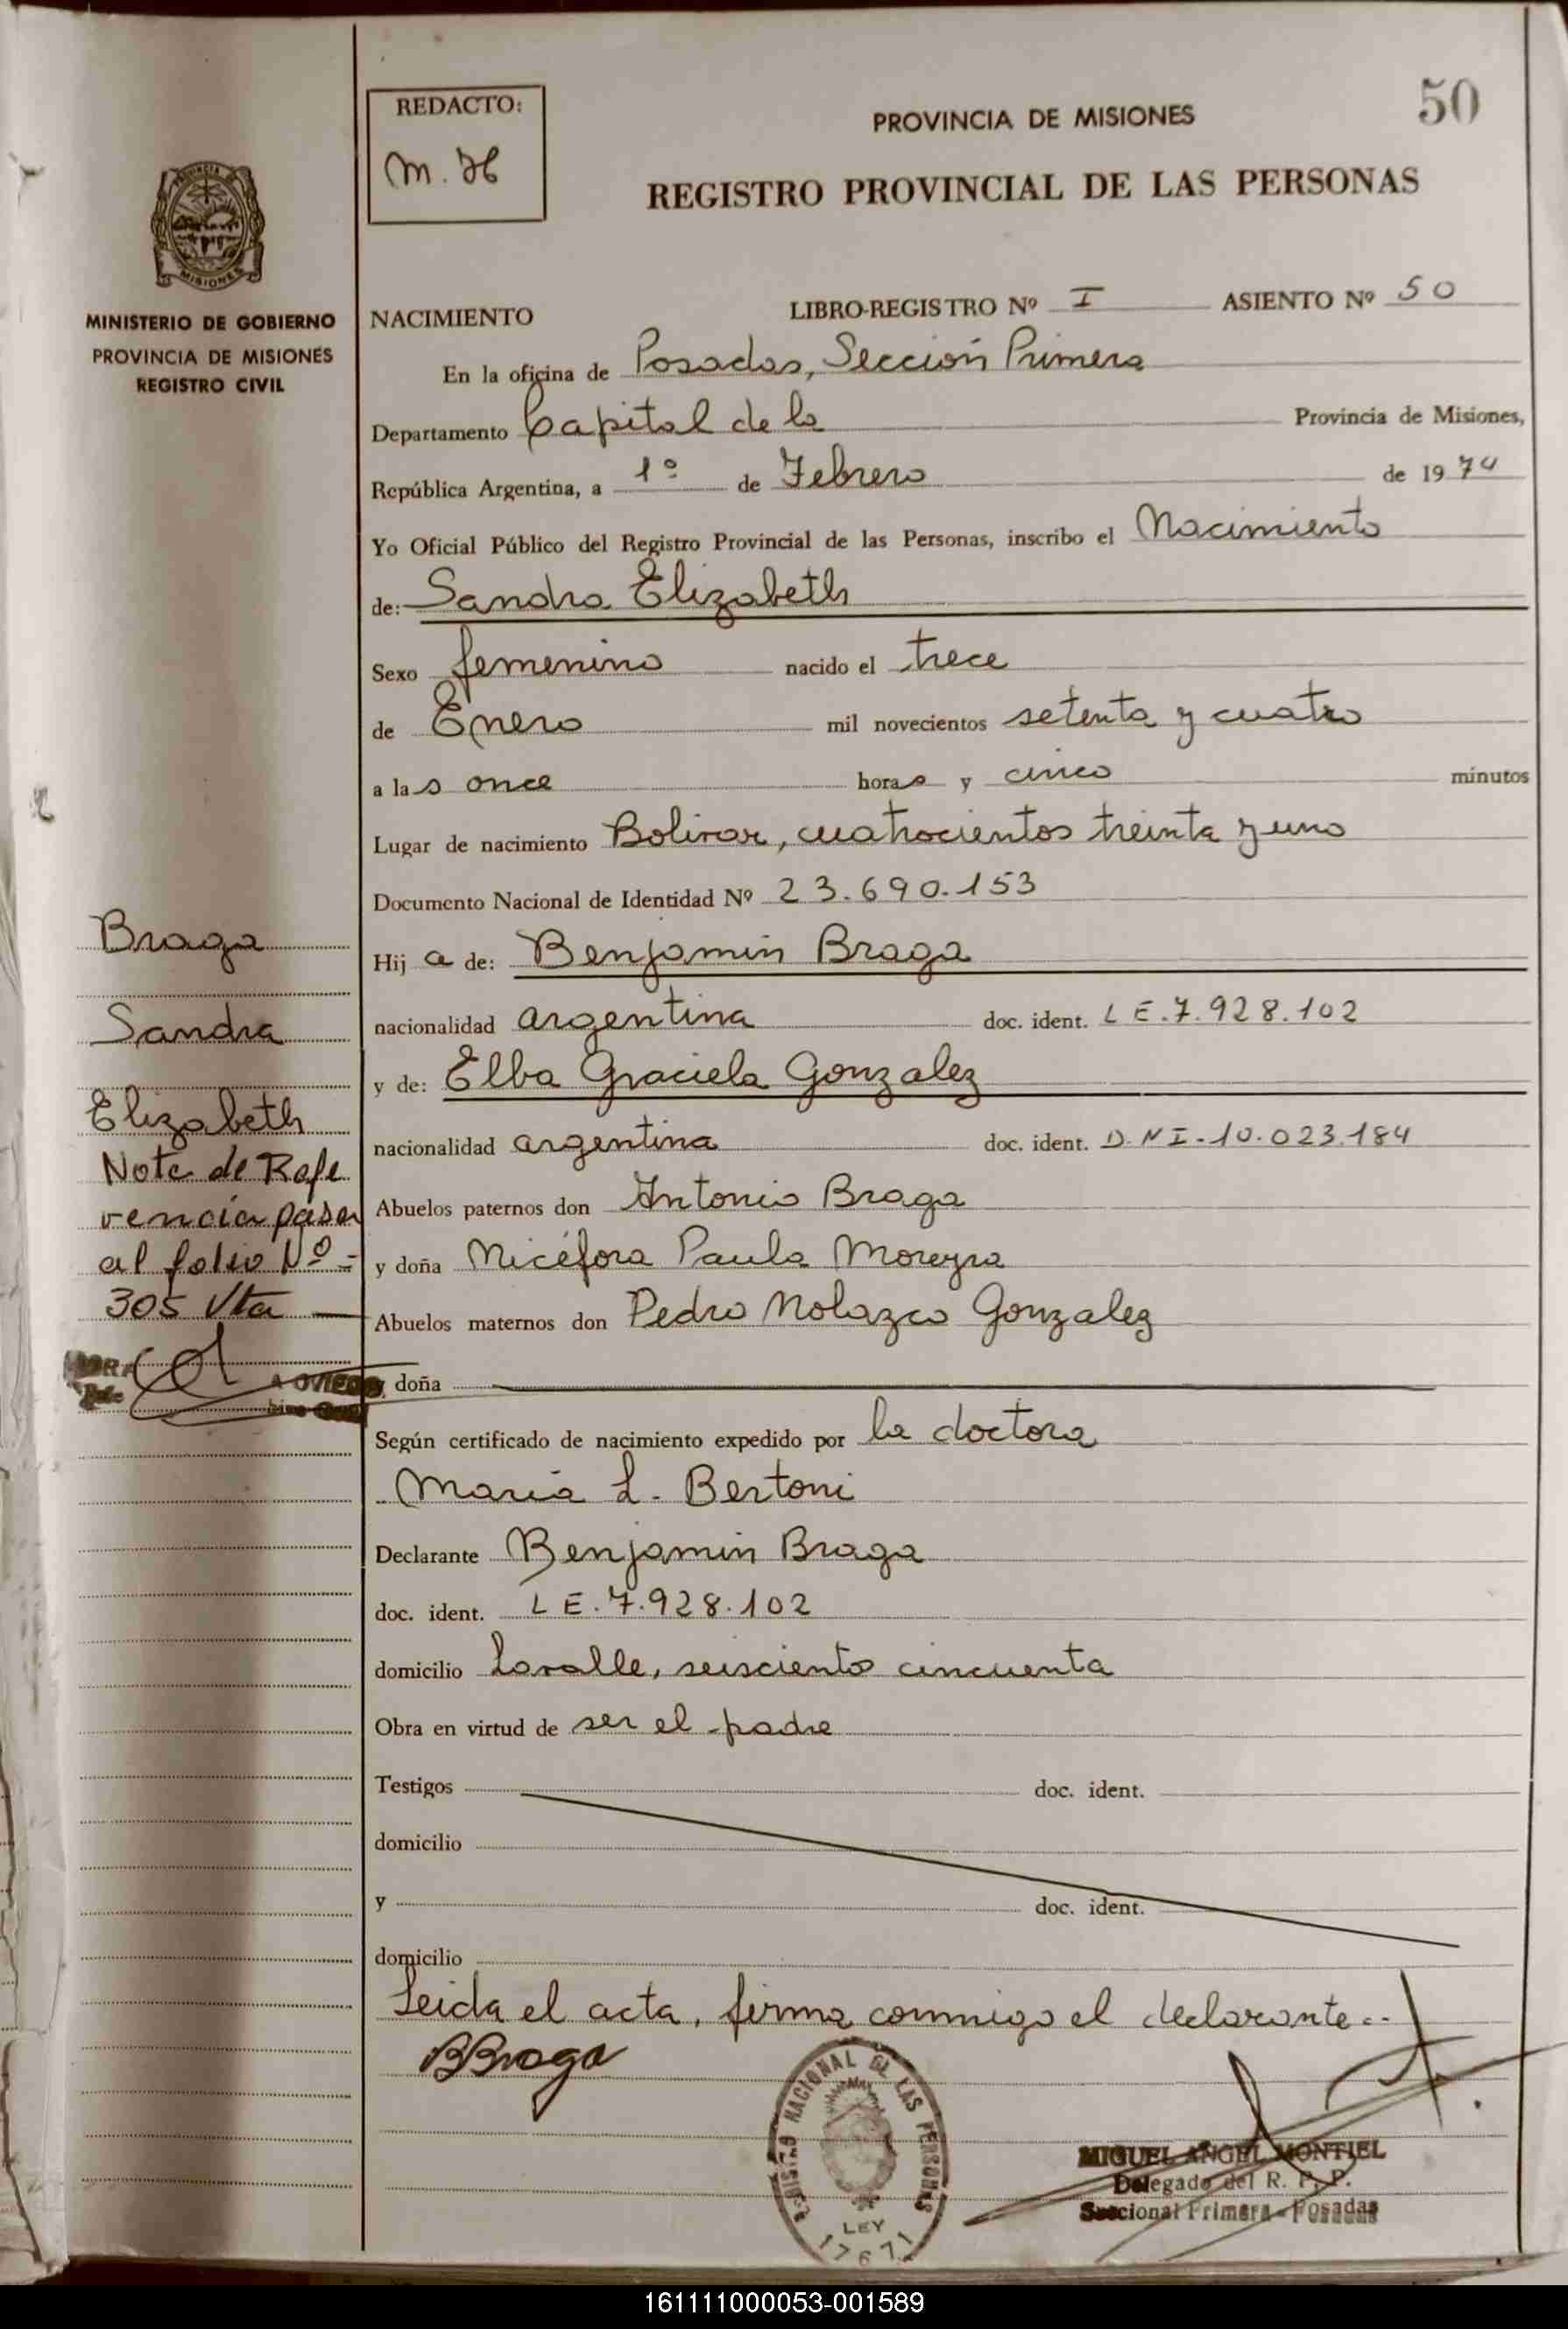 REDACTO:
M. H
PROVINCIA DE MISIONES
50
REGISTRO PROVINCIAL DE LAS PERSONAS
MISIONES
MINISTERIO DE GOBIERNO
PROVINCIA DE MISIONES
REGISTRO CIVIL
NACIMIENTO LIBRO-REGISTRO Nº I ASIENTO Nº 50
En la oficina de Posadas, Sección Primera
Departamento Capital de la Provincia de Misiones,
República Argentina, a 1º de Febrero de 1974
Yo Oficial Público del Registro Provincial de las Personas, inscribo el Nacimiento
de: Sandra Elizabeth
Sexo femenino nacido el trece
de Enero mil novecientos setenta y cuatro
a las once horas y cinco minutos
Lugar de nacimiento Bolivar, cuatrocientos treinta y uno
Documento Nacional de Identidad Nº 23.690.153
Hija de: Benjamin Braga
nacionalidad argentina doc. ident. L E. 7.928.102
y de: Elba Graciela Gonzalez
nacionalidad argentina doc. ident. D.N I-10.023.184
Abuelos paternos don Antonio Braga
y doña Nicéfora Paula Moreyra
Abuelos maternos don Pedro Nolazco Gonzalez
y doña
Según certificado de nacimiento expedido por la doctora
Maria L. Bertoni
Declarante Benjamin Braga
doc. ident. L E. 7.928.102
domicilio Lavalle, seisciento cincuenta
Obra en virtud de ser el padre
Testigos doc. ident.
domicilio
y doc. ident.
domicilio
Leida el acta, firma conmigo el declarante..
BBraga
Braga
Sandra
Elizabeth
Nota de Refe
rencia pasa
al folio Nº =
305 Vta
OVIEDO
REGISTRO NACIONAL DE LAS PERSONAS
LEY
17671
MIGUEL ANGEL MONTIEL
Delegado del R. P. P.
Seccional Primera - Posadas
161111000053-001589